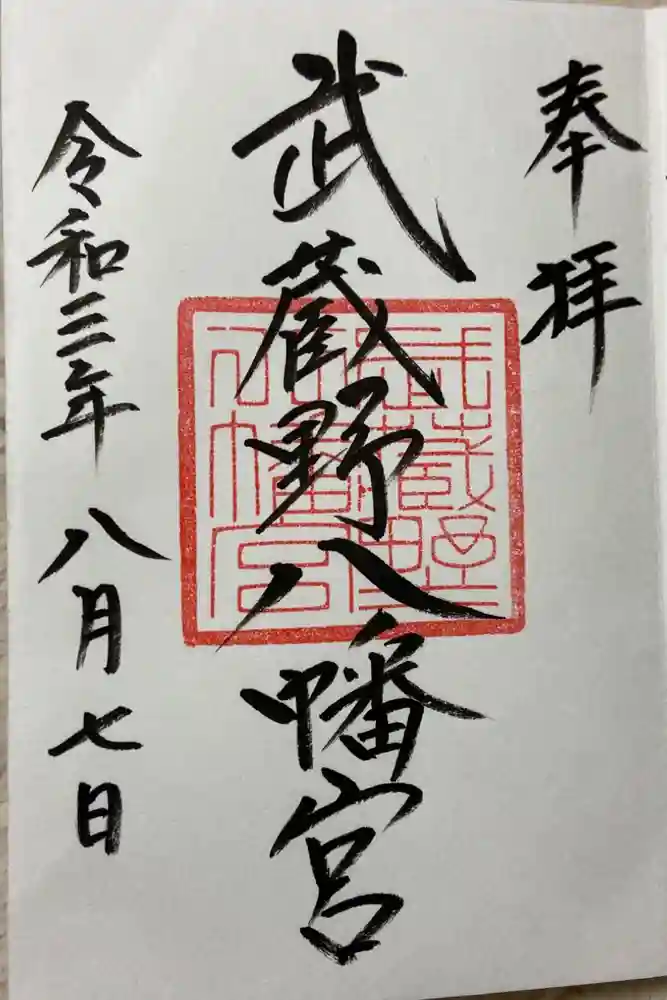 奉拝
武蔵野八幡宮
武蔵野八幡宮
令和三年八月七日